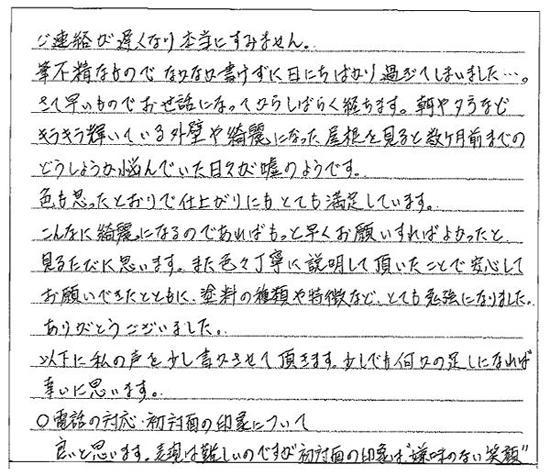 ご連絡が遅くなり本当にすみません。
筆不精なもので なかなか書けずに日にちばかり過ぎてしまいました…。
さて早いものでお世話になってからしばらく経ちます。朝や夕方など
キラキラ輝いている外壁や綺麗になった屋根を見ると数ケ月前までの
どうしようか悩んでいた日々が嘘のようです。
色も思ったとおりで仕上がりにもとても満足しています。
こんなに綺麗になるのであればもっと早くお願いすればよかったと
見るたびに思います。また色々丁寧に説明して頂いたことで安心して
お願いできたとともに、塗料の種類や特徴など、とても勉強になりました。
ありがとうございました。
以下に私の声を少し書かせて頂きます。少しでも何かの足しになれば
幸いに思います。
○電話の対応・初対面の印象について
良いと思います。表現は難しいのですが初対面の印象は"嫌味のない笑顔"